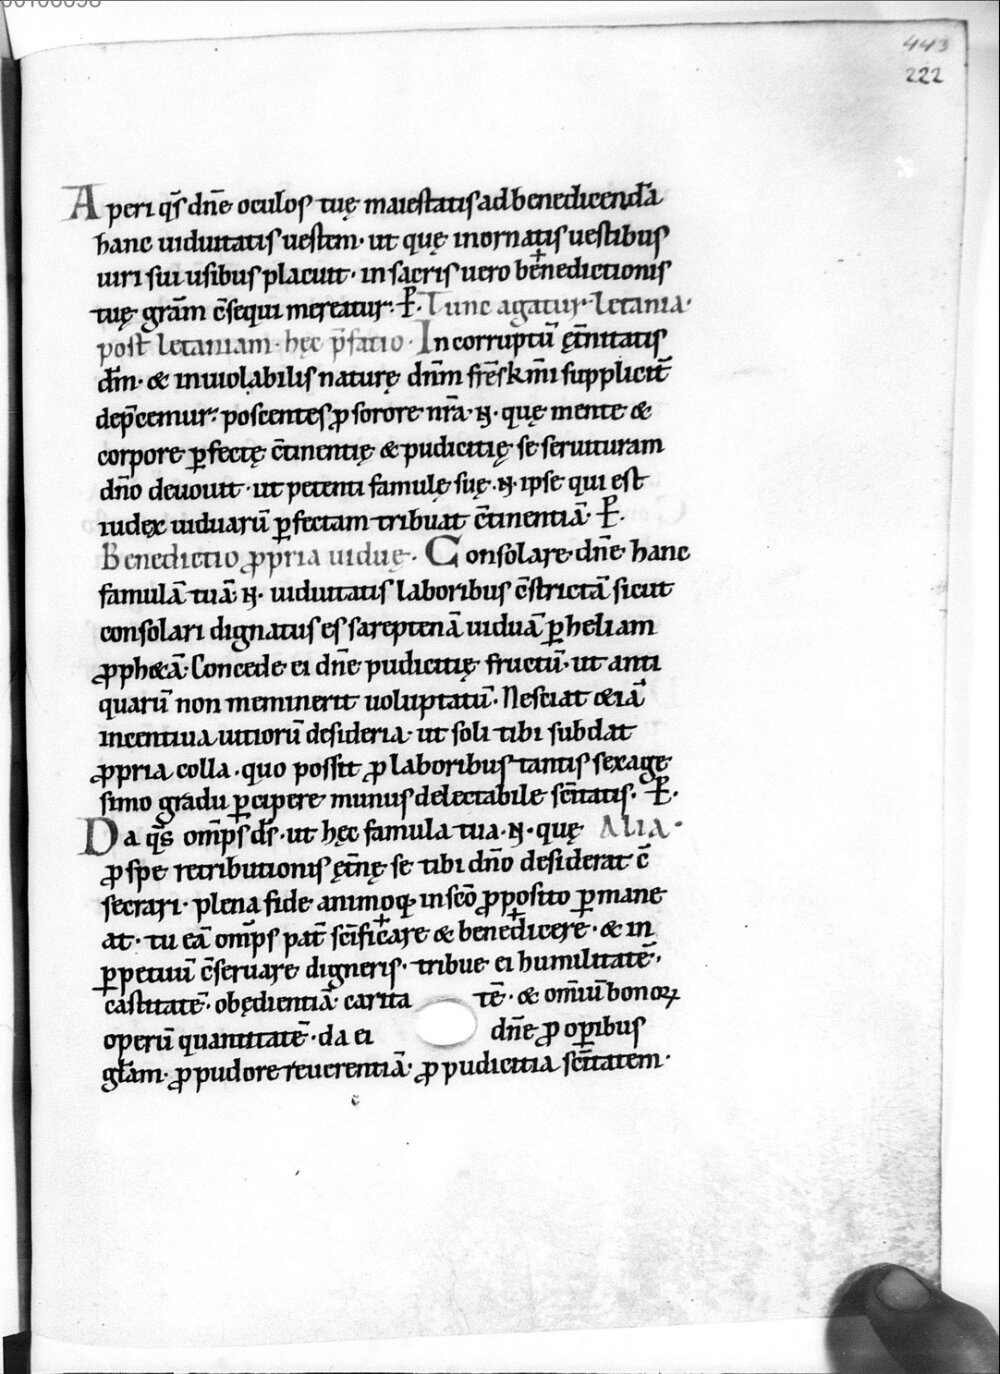 443
222
Aperi q̄s dn̄e oculos tuę maiestatis ad benedicendā
hanc uiduitatis uestem· ut quę inornatis uestibus
uiri sui usibus placuit· in sacris uero benedictionis
tuę grām c̄sequi mereatur· P̄. Tunc agatur letania·
post letaniam· hęc p̄fatio· Incorruptū ęt̄nitatis
dm̄· & inuiolabilis naturę dnm̄ fr̄es km̄i suppliciť
dep̄cemur· poscentes ꝓ sorore nr̄a· N· quę mente &
corpore ꝑfectę c̄tinentię & pudicitię se seruituram
dn̄o deuouit· ut petenti famulę suę· N· ipse qui est
iudex uiduarū ꝑfectam tribuat c̄tinentiā· P̄.
Benedictio ꝓpria uiduę· Consolare dn̄e hanc
famulā tuā N· uiduitatis laboribus c̄strictā sicut
consolari dignatus es sareptenā uiduā ꝑ heliam
ꝓph&ā· Concede ei dn̄e pudicitię fructū· ut anti
quarū non meminerit uoluptatū· Nesciat &iā
incentiua uitiorū desideria· ut soli tibi subdat
ꝓpria colla· quo possit ꝓ laboribus tantis sexage
simo gradu ꝑcipere munus delectabile sc̄itatis· P̄.
Da q̄s omp̄s ds̄· ut hęc famula tua· N· quę Alia·
ꝓ spe retributionis ęt̄nę se tibi dn̄o desiderat c̄
secrari· plena fide animoq; in sc̄o ꝓposito ꝑmane
at· tu eā omp̄s pat̄ sc̄ificare & benedicere· & in
ꝑpetuū c̄seruare digneris· tribue ei humilitatē·
castitatē· obędientiā caritatē· & omīū bonoꝝ
operū quantitatē· da ei dn̄e ꝓ oꝑibus
glām· ꝓ pudore reuerentiā· ꝓ pudicitia sc̄itatem·